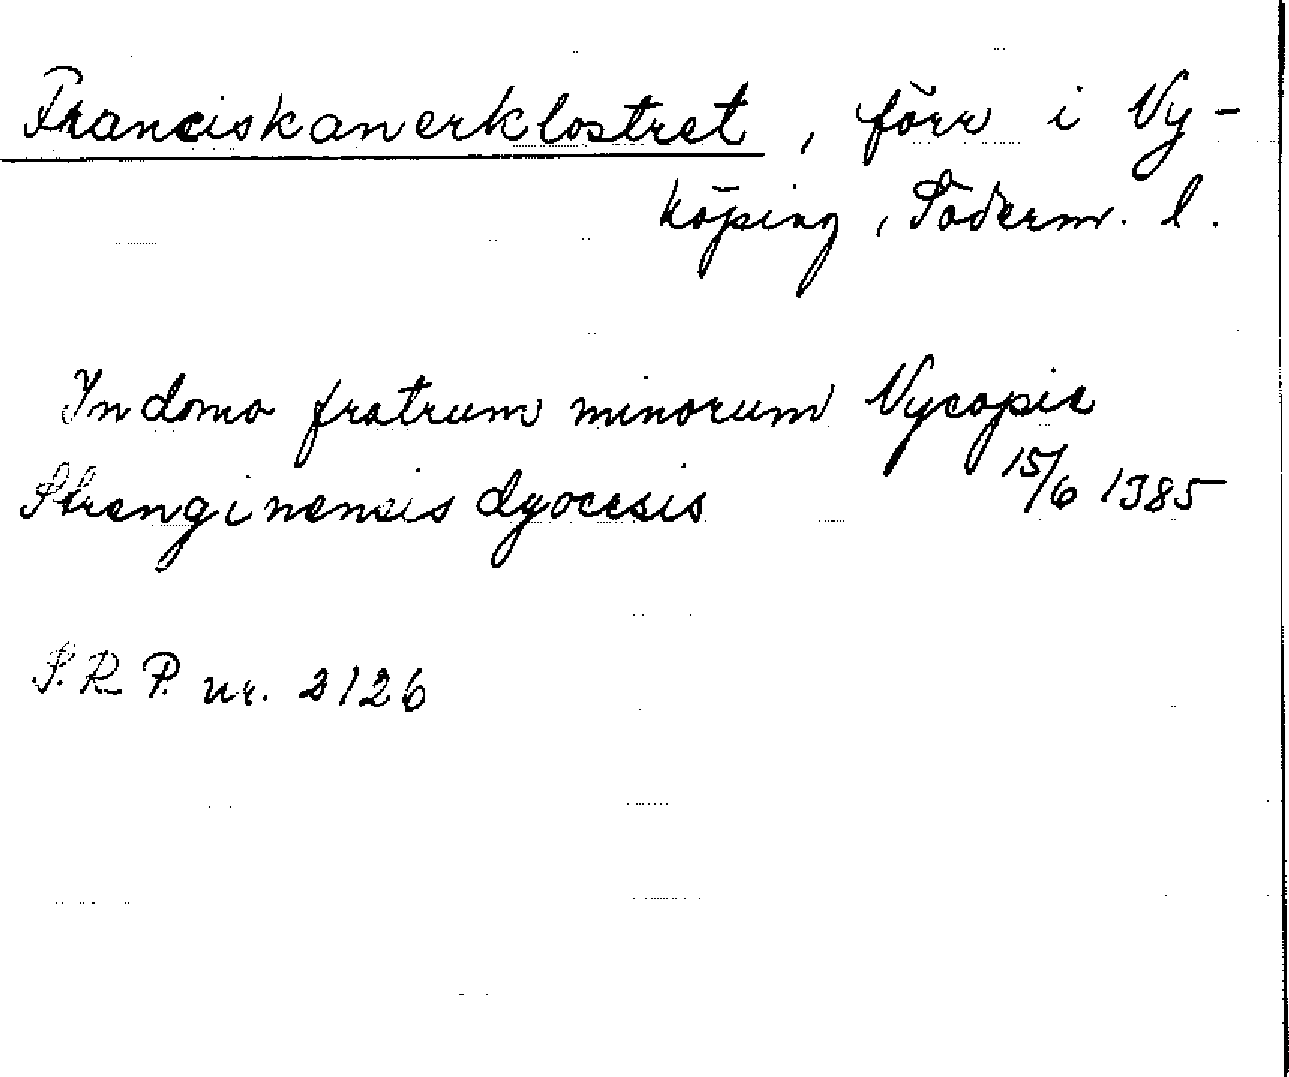 Franciskanerklostret, förr i Ny-
köping, Söderm. l.
In domo fratrum minorum Nycopie
Strenginensis dyocesis 15/6 1385
S.R.P. nr. 2126